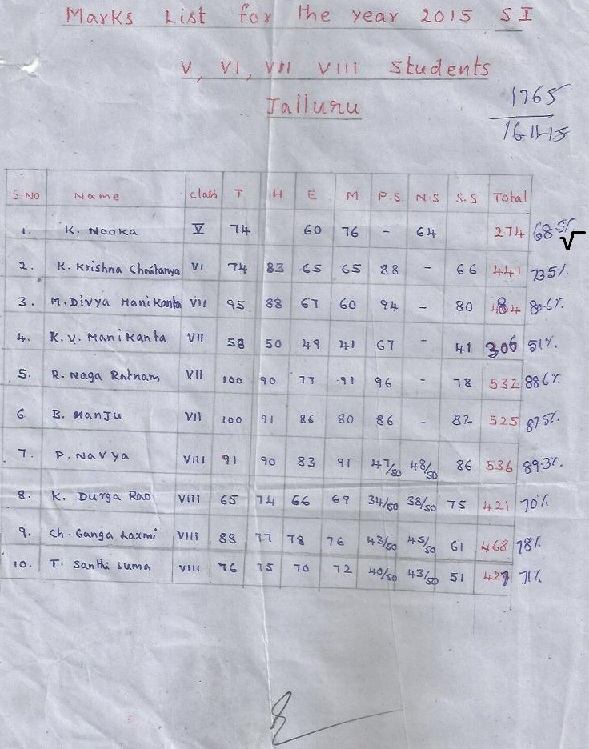 Marks List for the year 2015 SI
V, VI, VII VIII Students
Jalluru
1765
S.NO Name class T H E M P.S N.S S.S Total
1. K. Nooka V 74 60 76 - 64 274 68.5%
2. K. Krishna Chaitanya VI 74 83 65 65 88 - 66 441 73.5%
3. M. Divya Manikanta VII 95 88 67 60 94 - 80 484 80.6%
4. K.V. Manikanta VII 58 50 49 41 67 - 41 306 51%
5. R. Naga Ratnam VII 100 90 77 91 96 - 78 532 88.6%
6 B. Manju VII 100 91 86 80 86 - 82 525 87.5%
7. P. Navya VIII 91 90 83 91 47/50 48/50 86 536 89.3%
8. K. Durga Rao VIII 65 74 66 69 34/50 38/50 75 421 70%
9. Ch. Ganga Laxmi VIII 88 77 78 76 43/50 45/50 61 468 78%
10. T. Santhi Suma VIII 76 75 70 72 40/50 43/50 51 427 71%